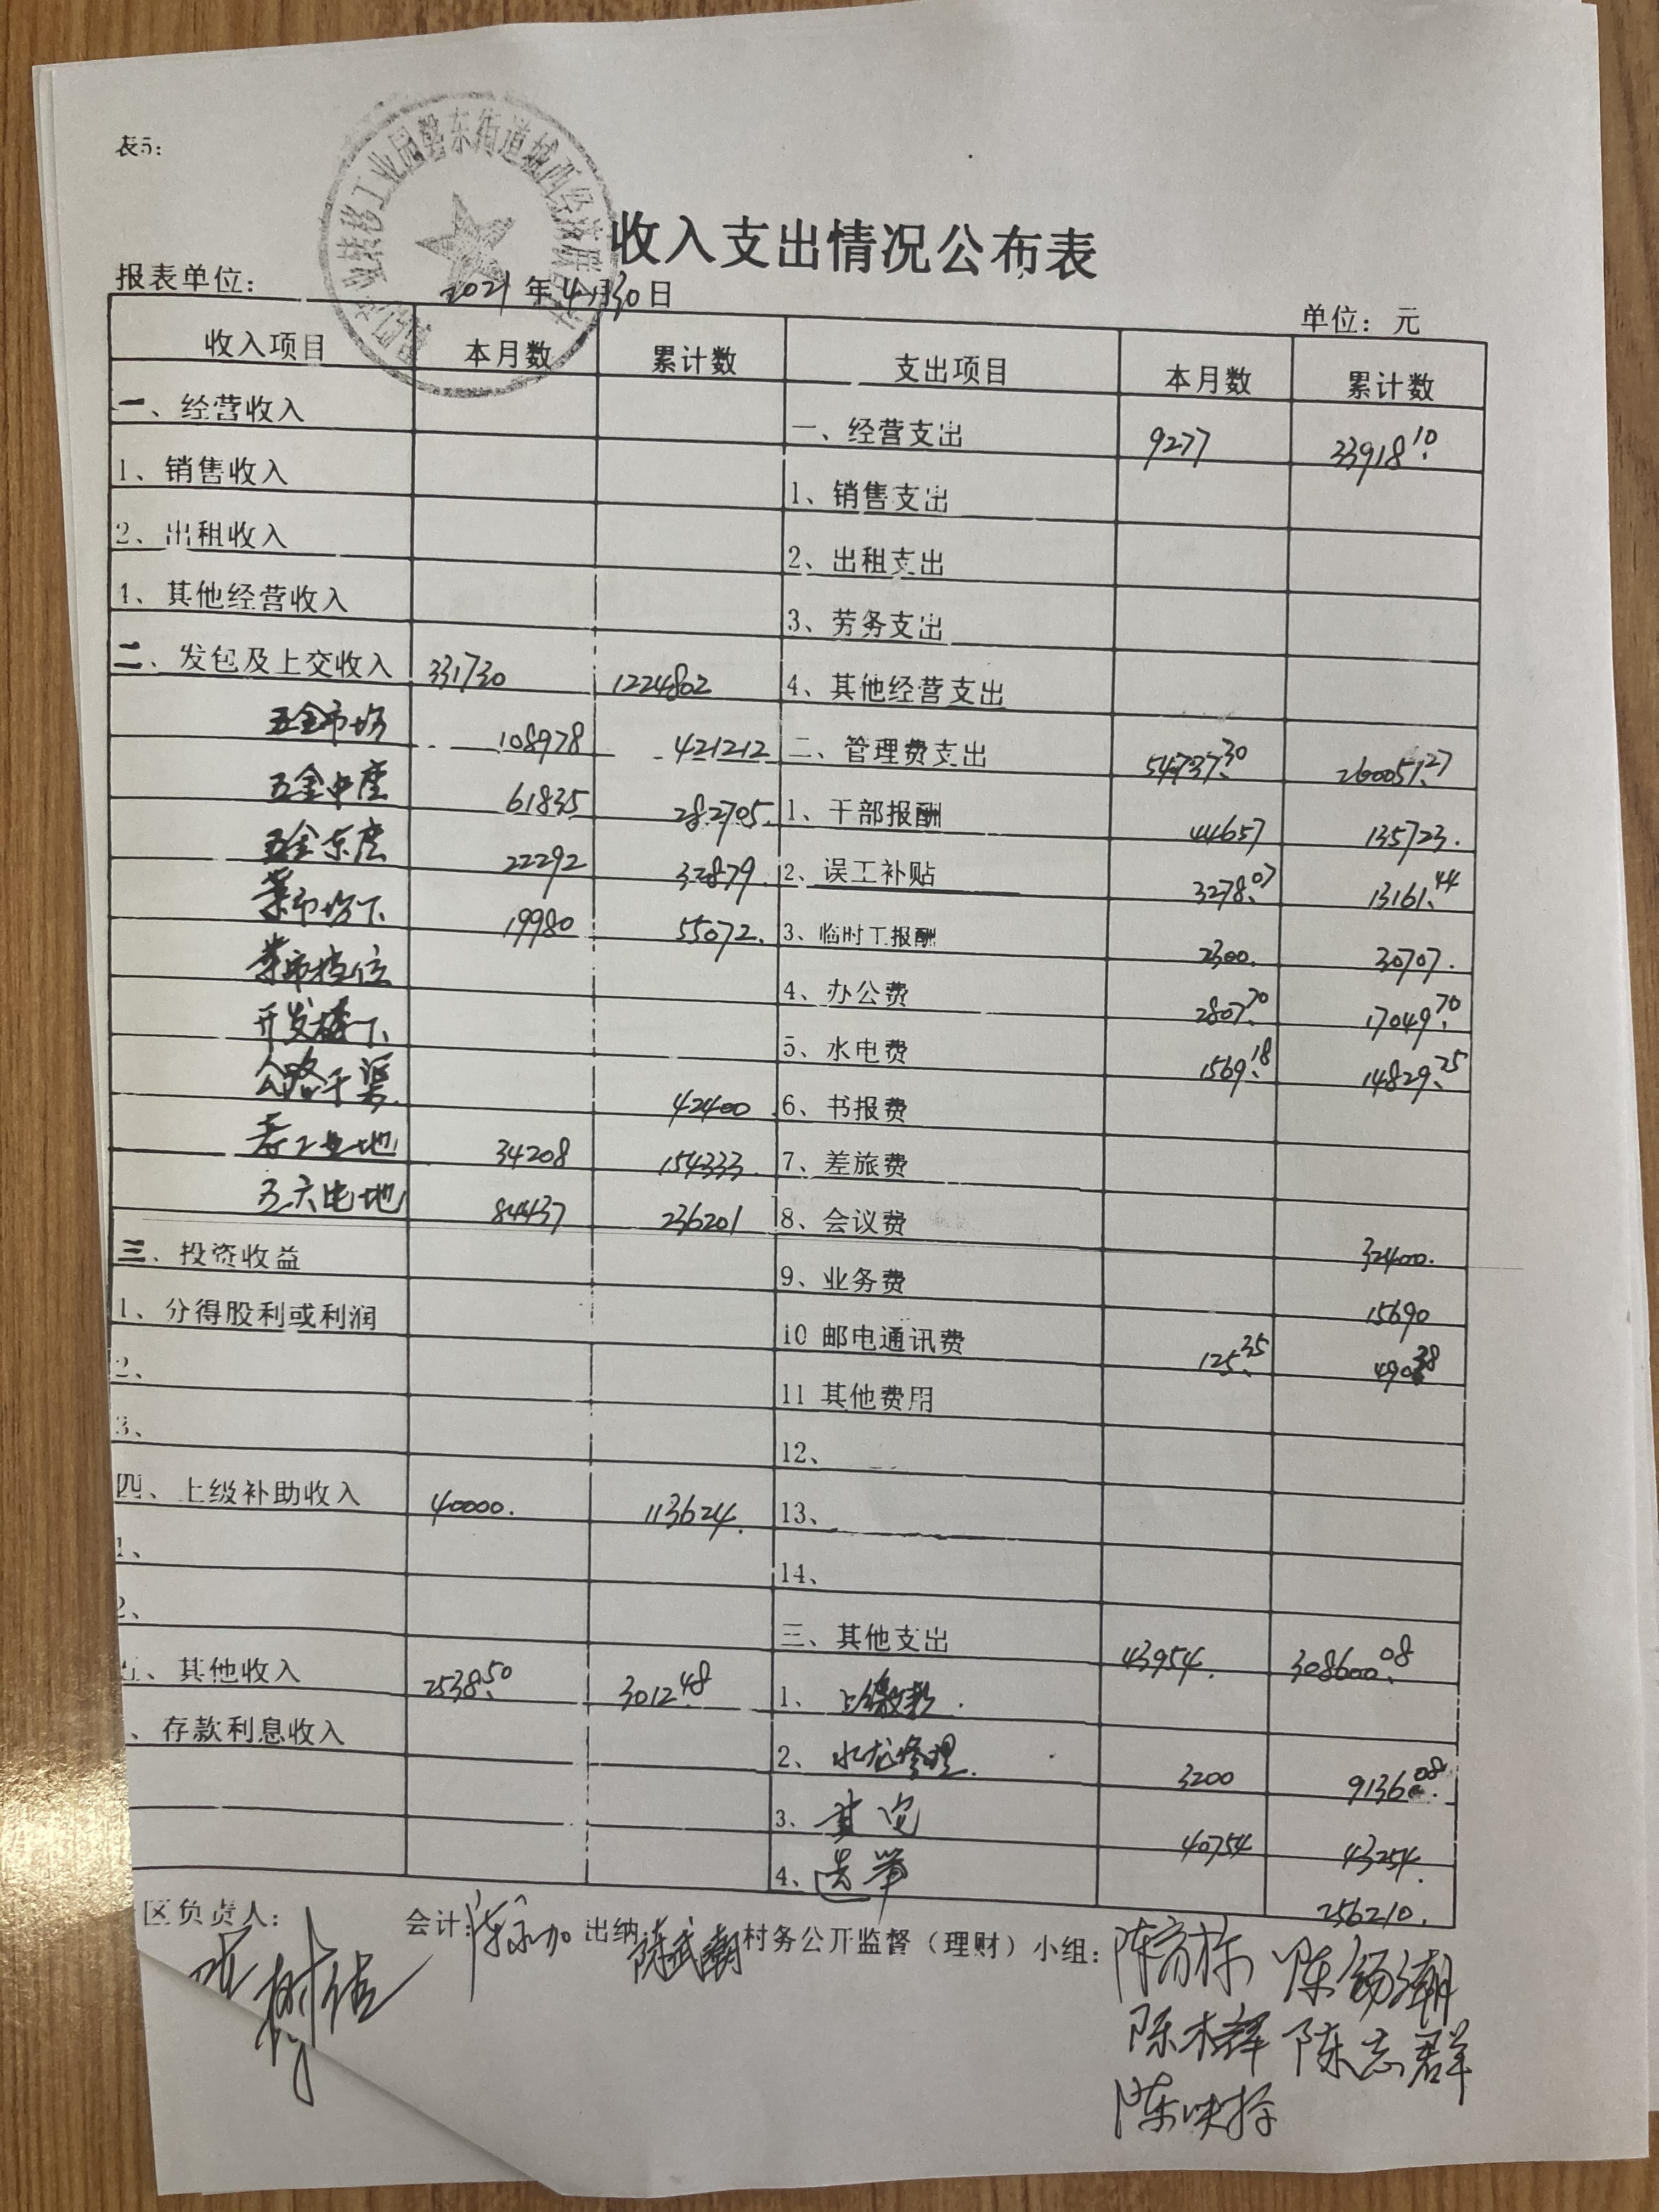 表5:
收入支出情况公布表
报表单位: 2021年4月30日 单位: 元
收入项目 本月数 累计数 支出项目 本月数 累计数
一、经营收入 一、经营支出 9277 33918.10
1、销售收入 1、销售支出
2、出租收入 2、出租支出
4、其他经营收入 3、劳务支出
二、发包及上交收入 331730 1224802 4、其他经营支出
五金市场 108978 421212 二、管理费支出 54737.30 260051.27
五金中座 61835 282705. 1、干部报酬 44657 135723.
五金东座 22292 32879. 2、误工补贴 3278.07 13161.44
菜市场下 19980 55072. 3、临时工报酬 2300. 30707.
菜市档位 4、办公费 2807.70 17049.70
开发楼下 5、水电费 1569.18 14829.25
公路干渠 42400 6、书报费
工业地 34208 154333. 7、差旅费
五六电地 84437 236201 8、会议费 32400.
三、投资收益 9、业务费 15690
1、分得股利或利润 10 邮电通讯费 125.35 490.38
2、 11 其他费用
3、 12、
四、上级补助收入 40000. 113624. 13、
1、 14、
2、 三、其他支出 43954. 308600.08
、其他收入 2538.50 3012.48 1、上缴款.
、存款利息收入 2、水龙修理. 3200 9136.08
3、其它 40754 43254.
4、选举 256210.
区负责人: 会计: 陈永加 出纳 陈武潮 村务公开监督（理财）小组: 陈锡潮
陈木辉 陈志群